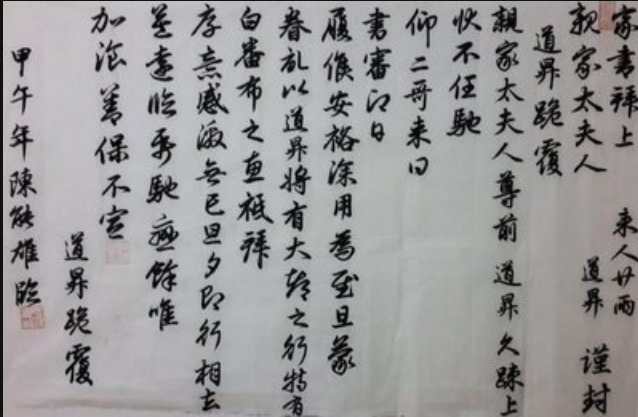 家書拜上
親家太夫人
来人廿兩
道昇 謹封
道昇跪覆
親家太夫人尊前 道昇久疎上
狀不任馳
仰二哥来曰
書審即日
履候安裕深用為慰且蒙
眷私以道昇將有大都之行特有
白番布之惠祗拜
厚意感激無已旦夕即行相去
益遠臨風馳戀餘唯
加飡善保不宣
道昇跪覆
甲午年陳能雄臨